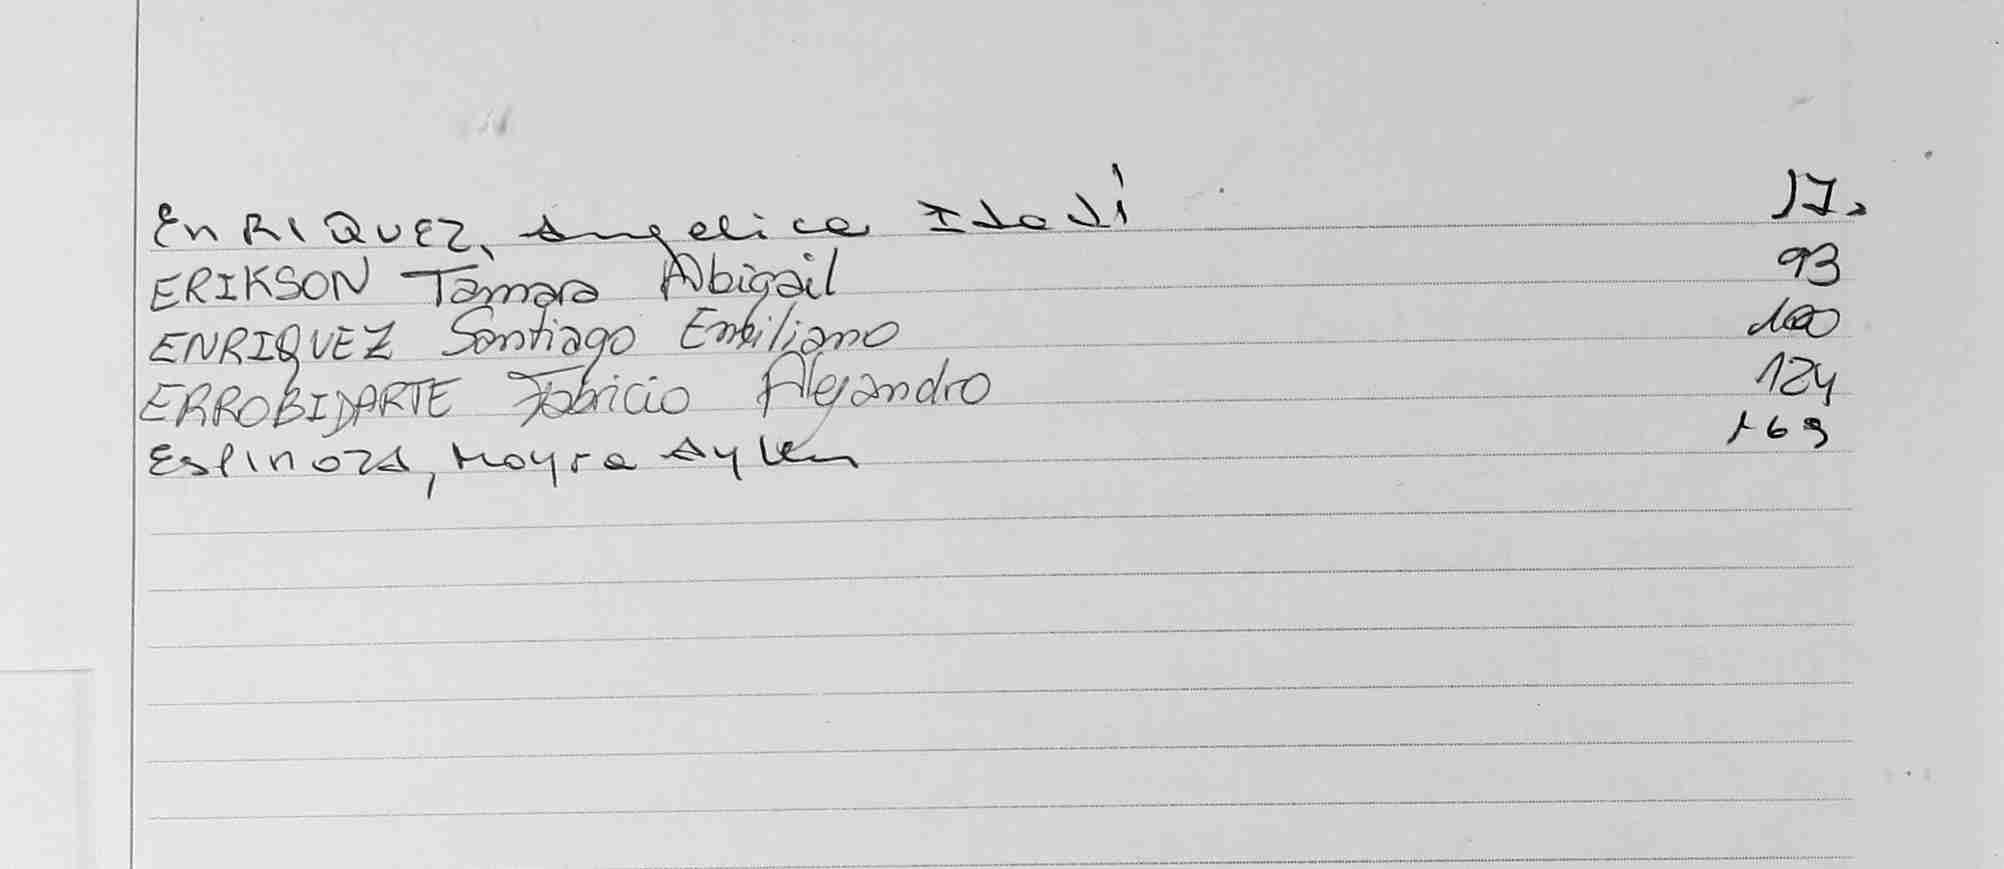 EnRIQUEZ, Angelica 17.
ERIKSON Tamara Abigail 93
ENRIQUEZ Santiago Emiliano 100
ERROBIDARTE Fabricio Alejandro 124
EspinozA, Mayra Aylen 169